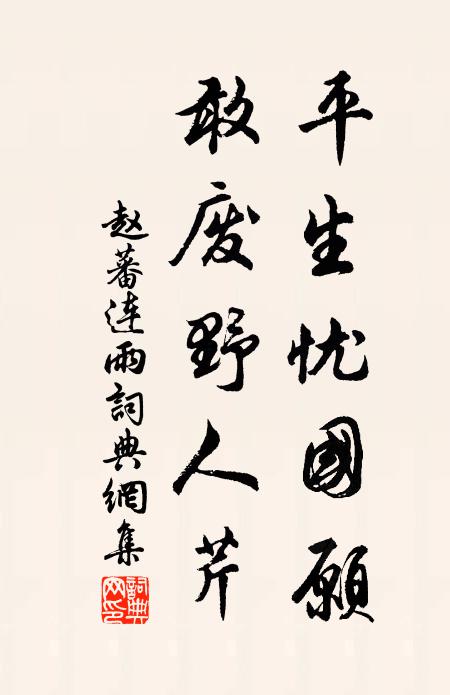 平生忧國願
敢废野人芹
赵蕃连雨詞典網集
詞典网印